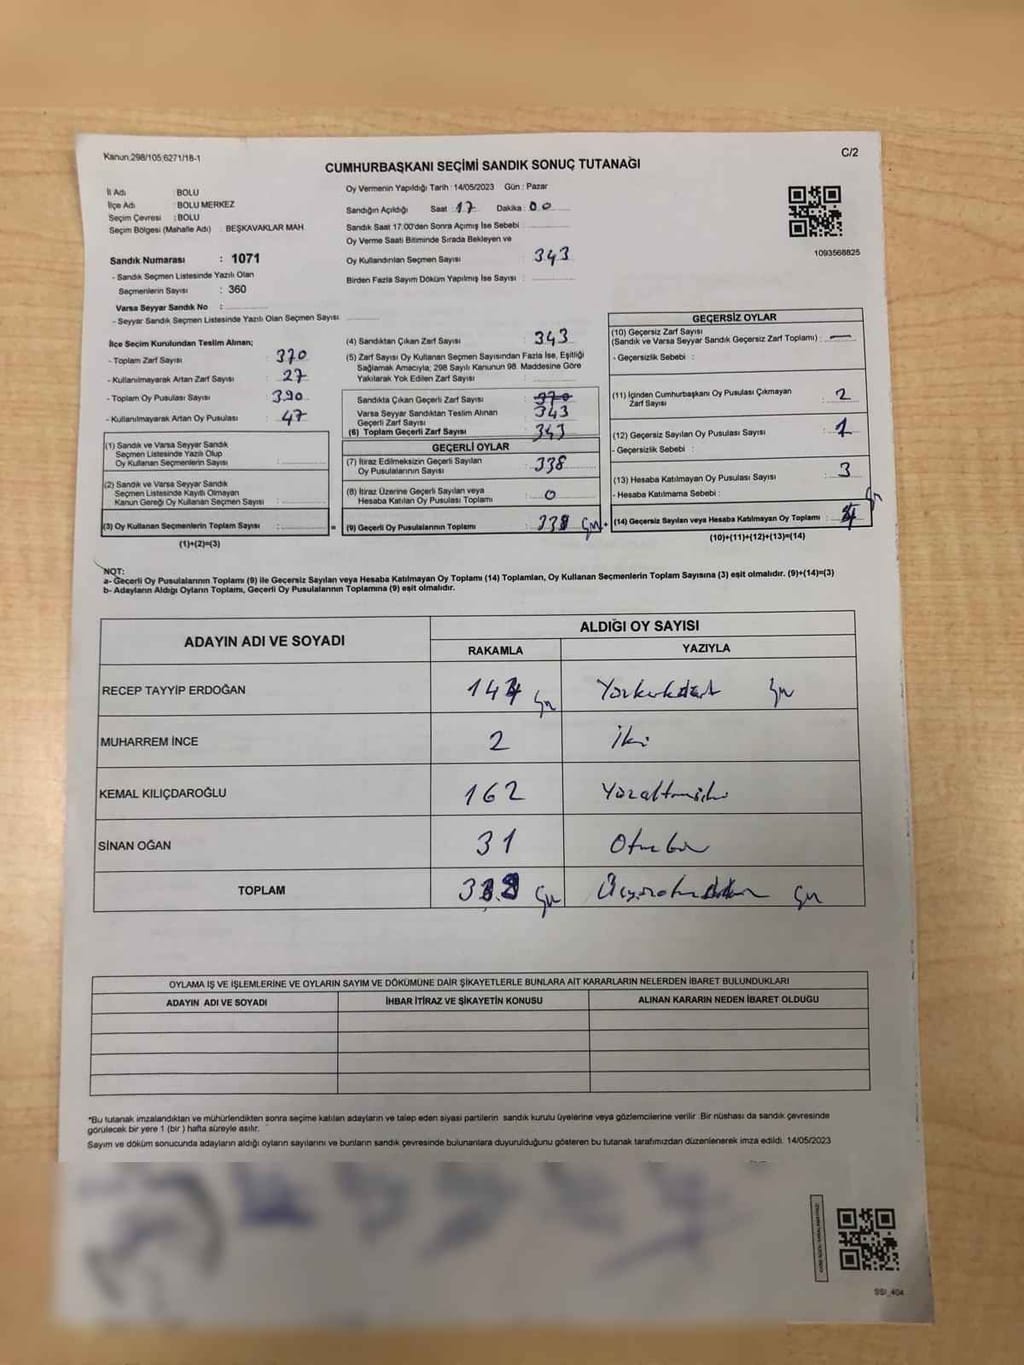 Kanun:298/105;6271/18-1
C/2
CUMHURBAŞKANI SEÇİMİ SANDIK SONUÇ TUTANAĞI
İl Adı : BOLU
İlçe Adı : BOLU MERKEZ
Seçim Çevresi : BOLU
Seçim Bölgesi (Mahalle Adı) : BEŞKAVAKLAR MAH.
Sandık Numarası : 1071
- Sandık Seçmen Listesinde Yazılı Olan
Seçmenlerin Sayısı : 360
Varsa Seyyar Sandık No :
- Seyyar Sandık Seçmen Listesinde Yazılı Olan Seçmen Sayısı:
Oy Vermenin Yapıldığı Tarih : 14/05/2023 Gün : Pazar
Sandığın Açıldığı Saat : 17 Dakika : 00
Sandık Saat 17:00'den Sonra Açımış İse Sebebi :
Oy Verme Saati Bitiminde Sırada Bekleyen ve
Oy Kullandırılan Seçmen Sayısı : 343
Birden Fazla Sayım Döküm Yapılmış İse Sayısı :
1093568825
İlçe Seçim Kurulundan Teslim Alınan;
- Toplam Zarf Sayısı : 370
- Kullanılmayarak Artan Zarf Sayısı : 27
- Toplam Oy Pusulası Sayısı : 390
- Kullanılmayarak Artan Oy Pusulası : 47
(1) Sandık ve Varsa Seyyar Sandık
Seçmen Listesinde Yazılı Olup
Oy Kullanan Seçmenlerin Sayısı :
(2) Sandık ve Varsa Seyyar Sandık
Seçmen Listesinde Kayıtlı Olmayan
Kanun Gereği Oy Kullanan Seçmen Sayısı :
(3) Oy Kullanan Seçmenlerin Toplam Sayısı : =
(1)+(2)=(3)
(4) Sandıktan Çıkan Zarf Sayısı : 343
(5) Zarf Sayısı Oy Kullanan Seçmen Sayısından Fazla İse, Eşitliği
Sağlamak Amacıyla; 298 Sayılı Kanunun 98. Maddesine Göre
Yakılarak Yok Edilen Zarf Sayısı :
Sandıkta Çıkan Geçerli Zarf Sayısı : 370
Varsa Seyyar Sandıktan Teslim Alınan 343
Geçerli Zarf Sayısı :
(6) Toplam Geçerli Zarf Sayısı : 343
GEÇERLİ OYLAR
(7) İtiraz Edilmeksizin Geçerli Sayılan
Oy Pusulalarının Sayısı : 338
(8) İtiraz Üzerine Geçerli Sayılan veya
Hesaba Katılan Oy Pusulası Toplamı : 0
(9) Geçerli Oy Pusulalarının Toplamı : 338 +
GEÇERSİZ OYLAR
(10) Geçersiz Zarf Sayısı
(Sandık ve Varsa Seyyar Sandık Geçersiz Zarf Toplamı) : —
- Geçersizlik Sebebi :
(11) İçinden Cumhurbaşkanı Oy Pusulası Çıkmayan
Zarf Sayısı : 2
(12) Geçersiz Sayılan Oy Pusulası Sayısı : 1
- Geçersizlik Sebebi :
(13) Hesaba Katılmayan Oy Pusulası Sayısı : 3
- Hesaba Katılmama Sebebi :
(14) Geçersiz Sayılan veya Hesaba Katılmayan Oy Toplamı :
(10)+(11)+(12)+(13)=(14)
NOT:
a- Geçerli Oy Pusulalarının Toplamı (9) ile Geçersiz Sayılan veya Hesaba Katılmayan Oy Toplamı (14) Toplamları, Oy Kullanan Seçmenlerin Toplam Sayısına (3) eşit olmalıdır. (9)+(14)=(3)
b- Adayların Aldığı Oyların Toplamı, Geçerli Oy Pusulalarının Toplamına (9) eşit olmalıdır.
ADAYIN ADI VE SOYADI ALDIĞI OY SAYISI
RAKAMLA YAZIYLA
RECEP TAYYİP ERDOĞAN
MUHARREM İNCE 2 İki
KEMAL KILIÇDAROĞLU 162 Yüzaltmışiki
SİNAN OĞAN 31 Otuzbir
TOPLAM
OYLAMA İŞ VE İŞLEMLERİNE VE OYLARIN SAYIM VE DÖKÜMÜNE DAİR ŞİKAYETLERLE BUNLARA AİT KARARLARIN NELERDEN İBARET BULUNDUKLARI
ADAYIN ADI VE SOYADI İHBAR İTİRAZ VE ŞİKAYETİN KONUSU ALINAN KARARIN NEDEN İBARET OLDUĞU
*Bu tutanak imzalandıktan ve mühürlendikten sonra seçime katılan adayların ve talep eden siyasi partilerin sandık kurulu üyelerine veya gözlemcilerine verilir. Bir nüshası da sandık çevresinde
görülecek bir yere 1 (bir) hafta süreyle asılır.
Sayım ve döküm sonucunda adayların aldığı oyların sayılarını ve bunların sandık çevresinde bulunanlara duyurulduğunu gösteren bu tutanak tarafımızdan düzenlenerek imza edildi. 14/05/2023
SSI_404